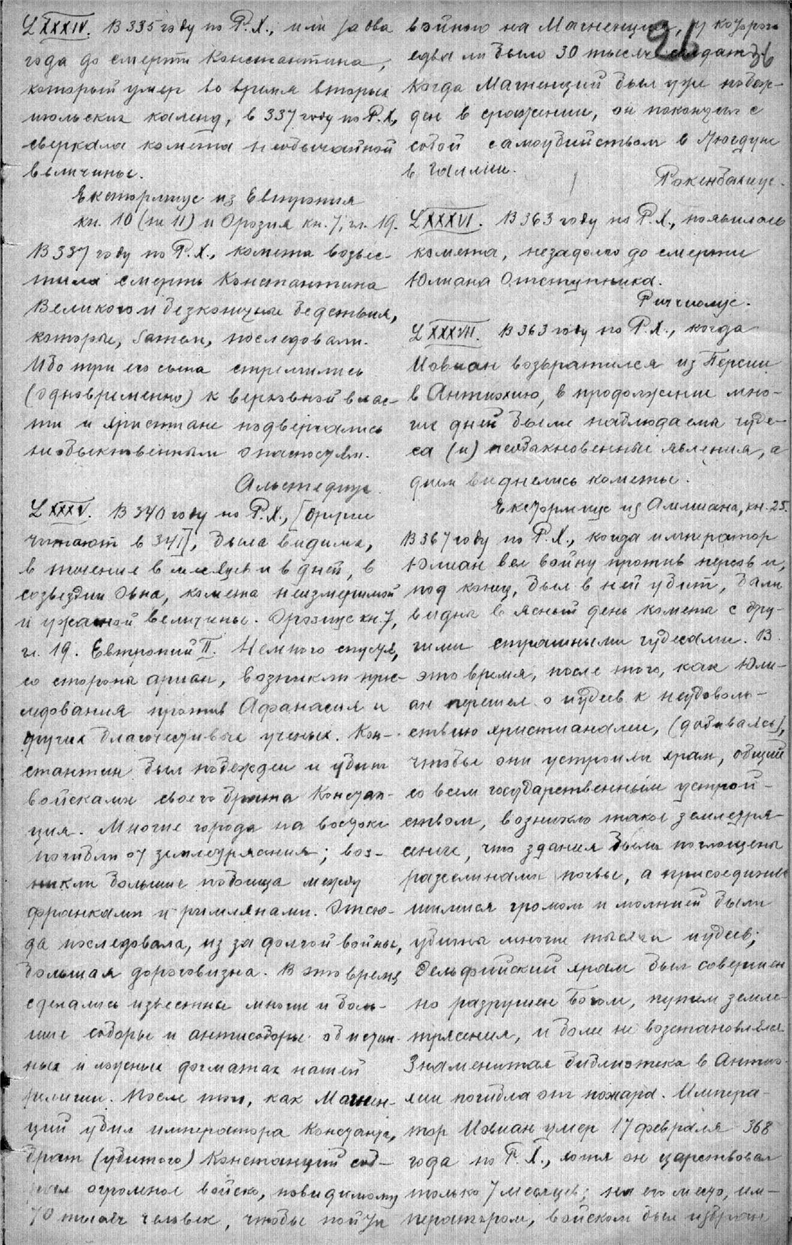 LXXXIV. В 335 году по Р.Х., или за два
года до смерти Константина,
который умер во время вторых
июльских календ, в 337 году по Р.Х,
сверкала комета необычайной
величины.
Екстормиус из Евтропия
кн. 10 (или 11) и Орозия кн. 7, гл. 19.
В 337 году по Р.Х., комета возве-
стила смерть Константина
Великого и безконечные бедствия,
которые, затем, последовали.
Ибо три его сына стремились
(одновременно) к верховной влас-
ти и христиане подвергались
необыкновенным опасностям.
Альстедиус.
LXXXV. В 340 году по Р.Х, [другие
читают в 341], была видима,
в течение в месяцев и в дней, в
созвездии Овна, комета неизмеримой
и ужасной величины. Орозиус кн. 7,
гл. 19. Евтропий II. Немного спустя,
со стороны ариан, возникли прес-
ледования против Афанасия и
других благочестивых ученых. Кон-
стантин был побежден и убит
войсками своего брата Констан-
ция. Многие города на востоке
погибли от землетрясения; воз-
никли большие побоища между
франками и римлянами. Отсю-
да последовала, из за долгой войны,
большая дороговизна. В это время
сделались известны многие и боль-
шие соборы и антисоборы об истин-
ных и ложных догматах нашей
религии. После того, как Магнен-
ций убил императора Констанса,
брат (убитого) Констанций соб-
рал огромное войско, повидимому
70 тысяч человек, чтобы пойти
26
войною на Магненция, у которого
едва ли было 30 тысяч солдат.
Когда Магненций был уже побеж-
ден в сражении, он покончил с
собой самоубийством в Люгдуне
в Галлии.
Рокенбахиус.
LXXXVI. В 363 году по Р.Х., появилась
комета, незадолго до смерти
Юлиана Отступника.
Риччиолус.
LXXXVII. В 363 году по Р.Х., когда
Иовиан возвратился из Персии
в Антиохию, в продолжение мно-
гих дней были наблюдаемы чуде-
са (и) необыкновенные явления, а
днем виднелись кометы.
Екстормиус из Аммиана, кн. 25.
В 367 году по Р.Х., когда император
Юлиан вел войну против персов и,
под конец, был в ней убит, была
видна в ясный день комета с дру-
гими страшными чудесами. В
это время, после того, как Юли-
ан перешел к неудоволь-
ствию христианами, (добиваясь),
чтобы они устроили храм, общий
со всем государственным устрой-
ством, возникло такое землетря-
сение, что здания были поглощены
разселинами почвы, а присоединив-
шимися громом и молнией были
убиты многие тысячи иудеев;
Дельфийский храм был совершен
но разрушен Богом, путем земле-
трясения, и более не возстановлялся
Знаменитая библиотека в Антио-
хии погибла от пожара. Импера-
тор Иовиан умер 17 февраля 368
года по Р.Х., хотя он царствовал
только 7 месяцев; на его место, им-
ператором, войском был избран